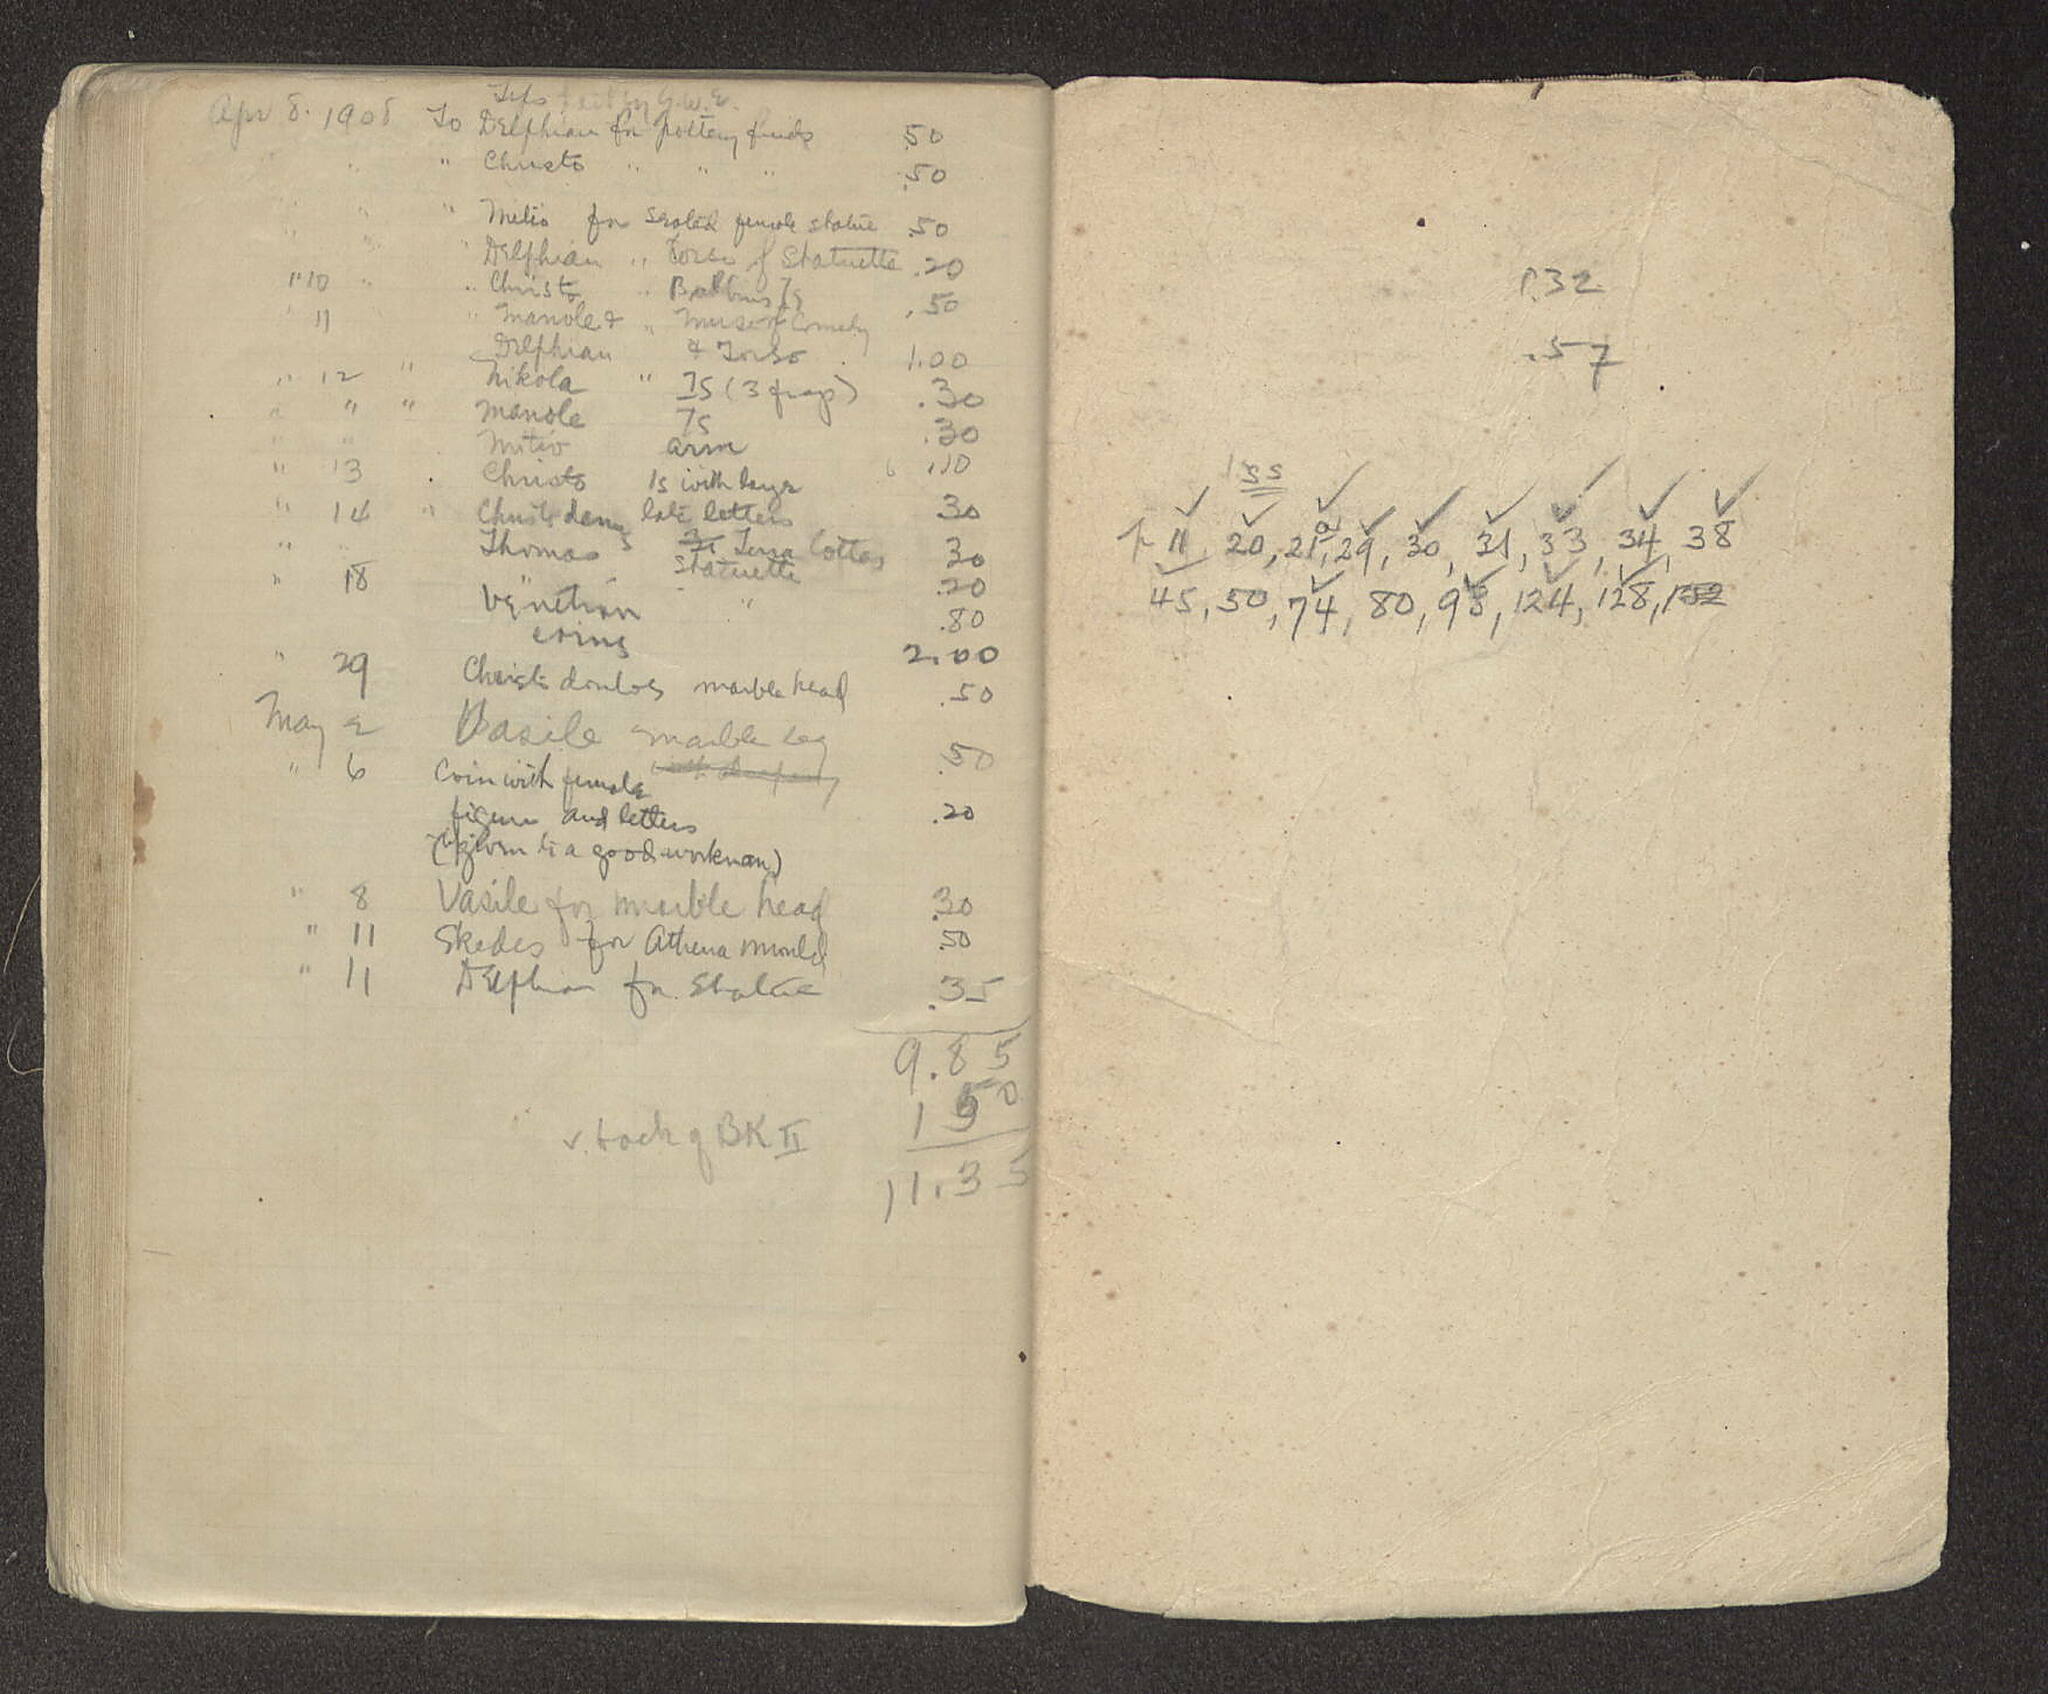 Tips paid by G.W.E.
Apr 8. 1908 To Delphian for pottery finds .50
" " Christo " " " .50
" " " Mitio for seated female statue .50
" " " Delphian " Torso of Statuette .20
" 10 " " Christo " Balbus Is .50
" 11 " Manole & " Muse of Comedy
Delphian & Torso 1.00
" 12 " Nikola " Is (3 frag) .30
" " " Manole Is .30
" " Mitio arm .10
" 13 Christo Is with
" 14 " Christo late letters 30
" " Thomas Terra Cottas 30
statuette .20
" 18 Venetian " .80
coins 2.00
" 29 Christo doulos marble head .50
May 2 Vasile marble leg .50
" 6 Coin with female
figure and letters .20
(given to a good workman)
" 8 Vasile for marble head .30
" 11 Skedes for Athena mould .50
" 11 Delphian for Statue .35
9.85
1 50
v. back of BK II
11.35
1.32
.57
Iss
p 11, 20, 21a, 29, 30, 31, 33, 34, 38
45, 50, 74, 80, 98, 124, 128, 132